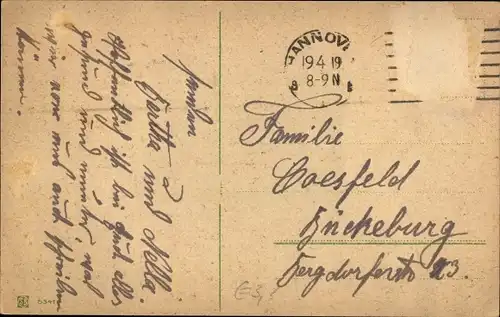 HANNOV
19 4 19
8-9 N
Familie
Coesfeld
Bückeburg
Bergdorferstr. 23.
Bertha und Nella.
Hoffentlich ist bei Euch alles
gesund und munter, was
wir von uns auch schreiben
können.